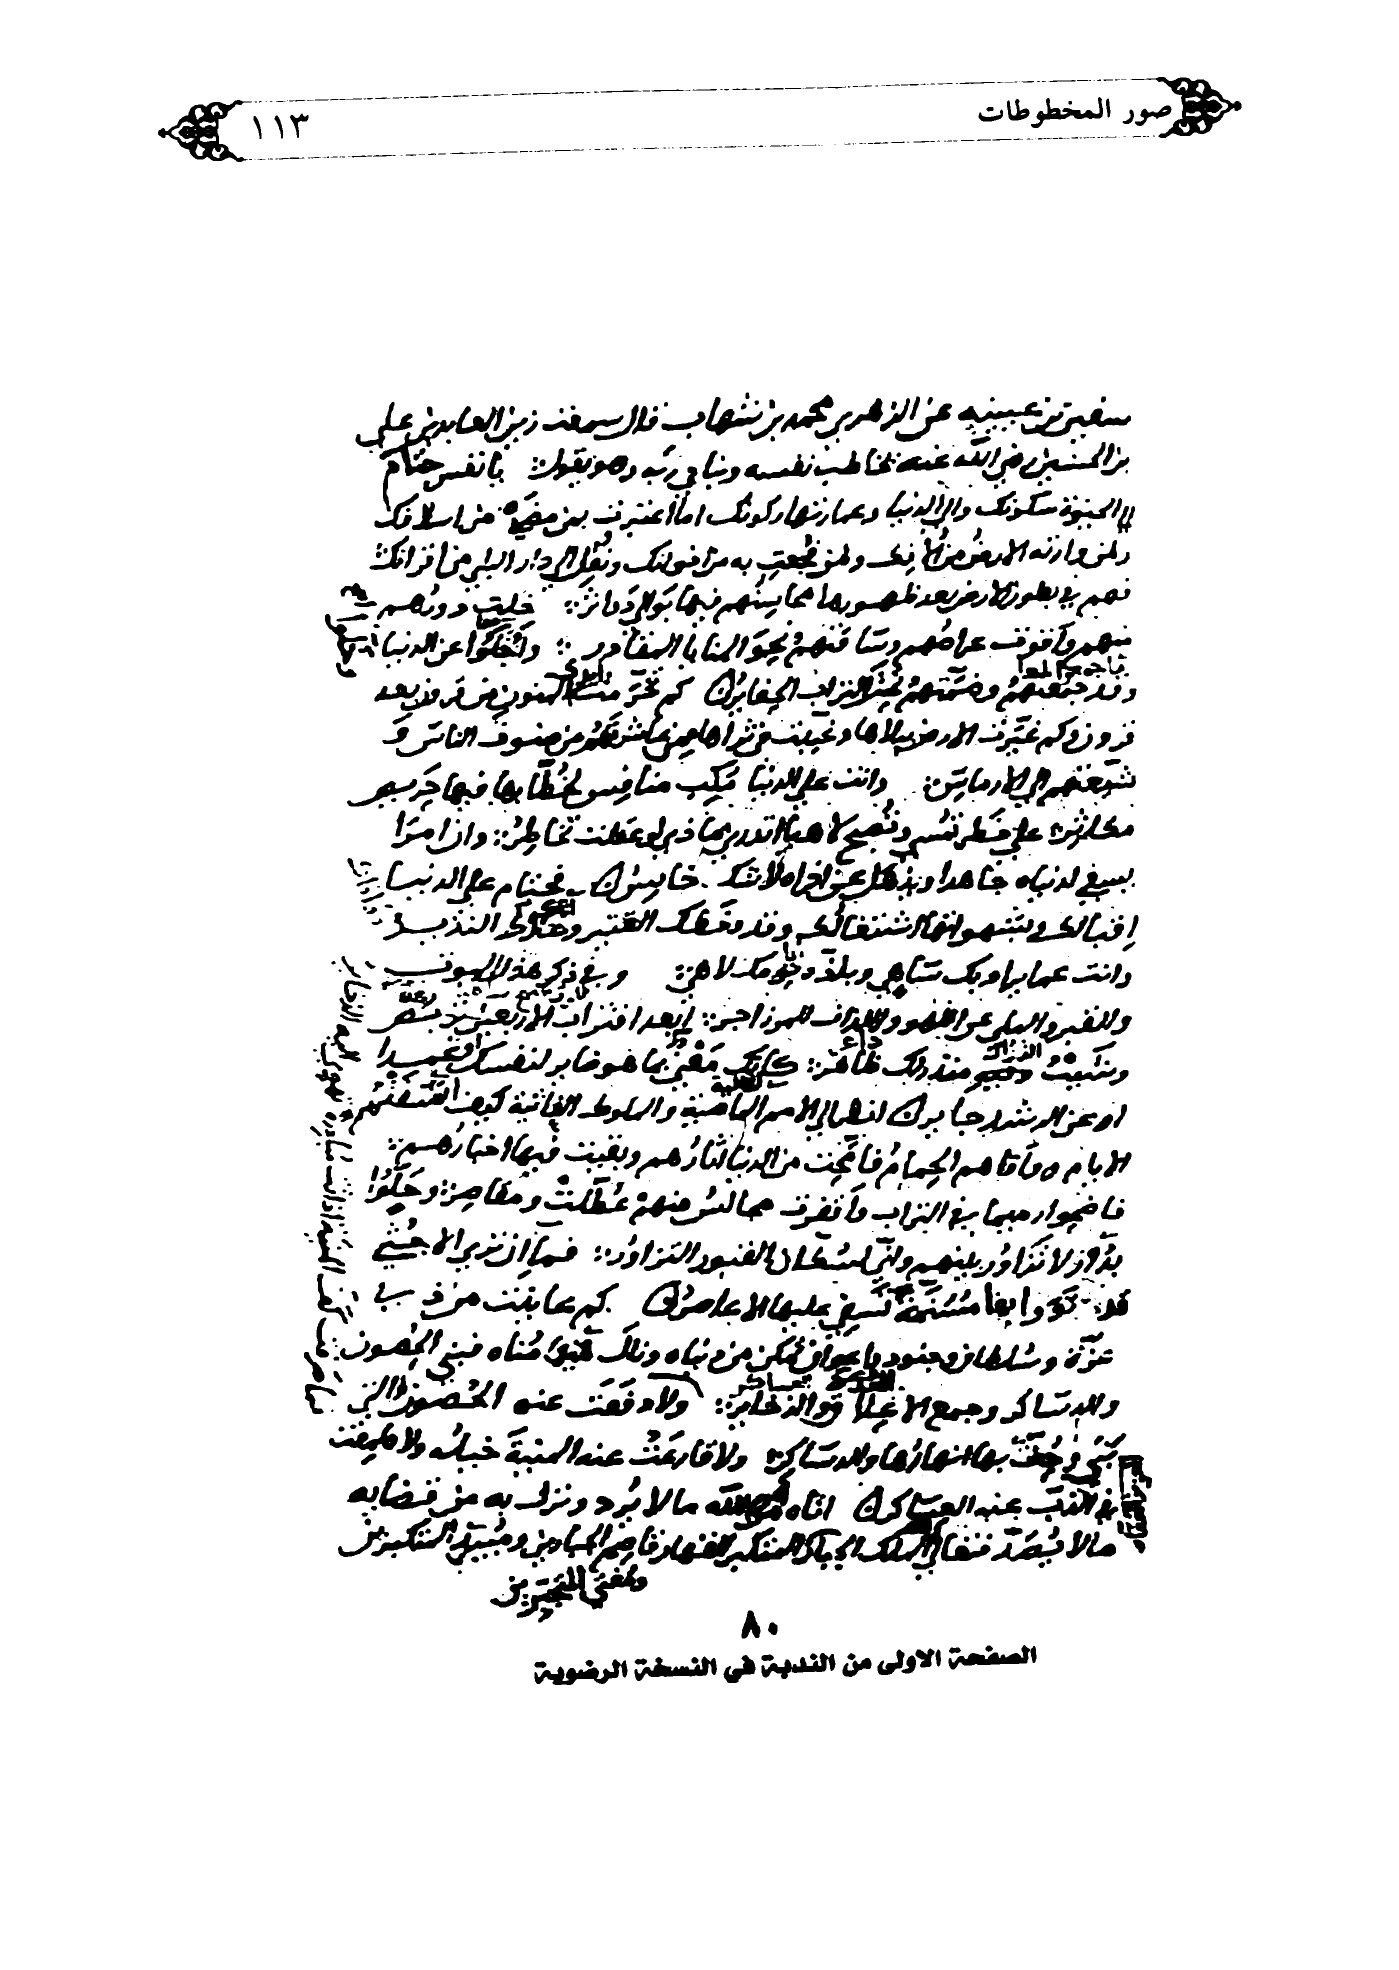 صور المخطوطات
١١٣
سفين بن عيينه عن الزهري محمد بن شهاب قال سمعت زين العابدين علي
بن الحسين رضي الله عنه يخاطب نفسه ويناجي ربه وهو يقول يا نفس حتام
الى الحيوة سكونك والى الدنيا وعمارتها ركونك اما اعتبرت بمن مضى من اسلافك
ولمن وارته الارض من الافك ولمن فجعت به من اخوانك ونقل الى دار البلى من اقرانك
فهم في بطون الارض بعد ظهورها محاسنهم فيها بوالي دواثر خلت دورهم
منهم واقوت عراصهم وساقتهم نحو المنايا المقادر وخلوا عن الدنيا
وضمتهم تحت التراب الحفائر كم المنون من قرون بعد
قرون وكم غيرت الارض ببلاها وغيبت في ثراها ممن عاشرت من صنوف الناس و
شيعتهم الى الارماس وانت على الدنيا مكب منافس لخطابها فيها حريص
مكاثر على خطر تمسي وتصبح لاهيا اتدري بماذا لو عقلت تخاطر وان امرا
يسعى لدنياه جاهدا ويذهل عن اخراه لا شك خاسر فحتام على الدنيا
اقبالك وبشهوتها اشتغالك وقد وخطك القتير النذير
وانت عما يراد بك ساهي وبلذة لاهي وفي ذكر هول الموت
والقبر والبلى عن اللهو واللذات للمرء زاجر ابعد اقتراب الاربعين تربص
وشيب منذ ذلك ظاهر كانك معني بما هو ضاير لنفسك عمدا
او عن الرشد جاير انظر الى الامم الماضية والملوك الفانية كيف افنتهم
الايام ووافاهم الحمام فامحت من الدنيا آثارهم وبقيت فيها اخبارهم
فاضحوا رميما في التراب واقفرت مجالس منهم عطلت ومقاصر وحلوا
بدار لا تزاور بينهم وانى لسكان القبور التزاور فما ان ترى الا جثى
قد ثووا بها مسنمة تسفي عليها الاعاصر كم عاينت من ذي
عزة وسلطان وجنود واعوان تمكن من دنياه ونال مناه فبنى الحصون
والدساكر وجمع الاعلاق والذخاير ولا دفعت عنه الحصون التي
بنى وحف بها انهارها والدساكر ولا قارعت عنه المنية خيله ولا طمعت
في الذب عنه العساكر اتاه من الله ما لا يرد ونزل به من قضايه
ما لا يصد فتعالى الملك الجبار المتكبر القهار قاصم الجبارين ومبير المتكبرين
٨٠
الصفحة الاولى من الندبة في النسخة الرضوية